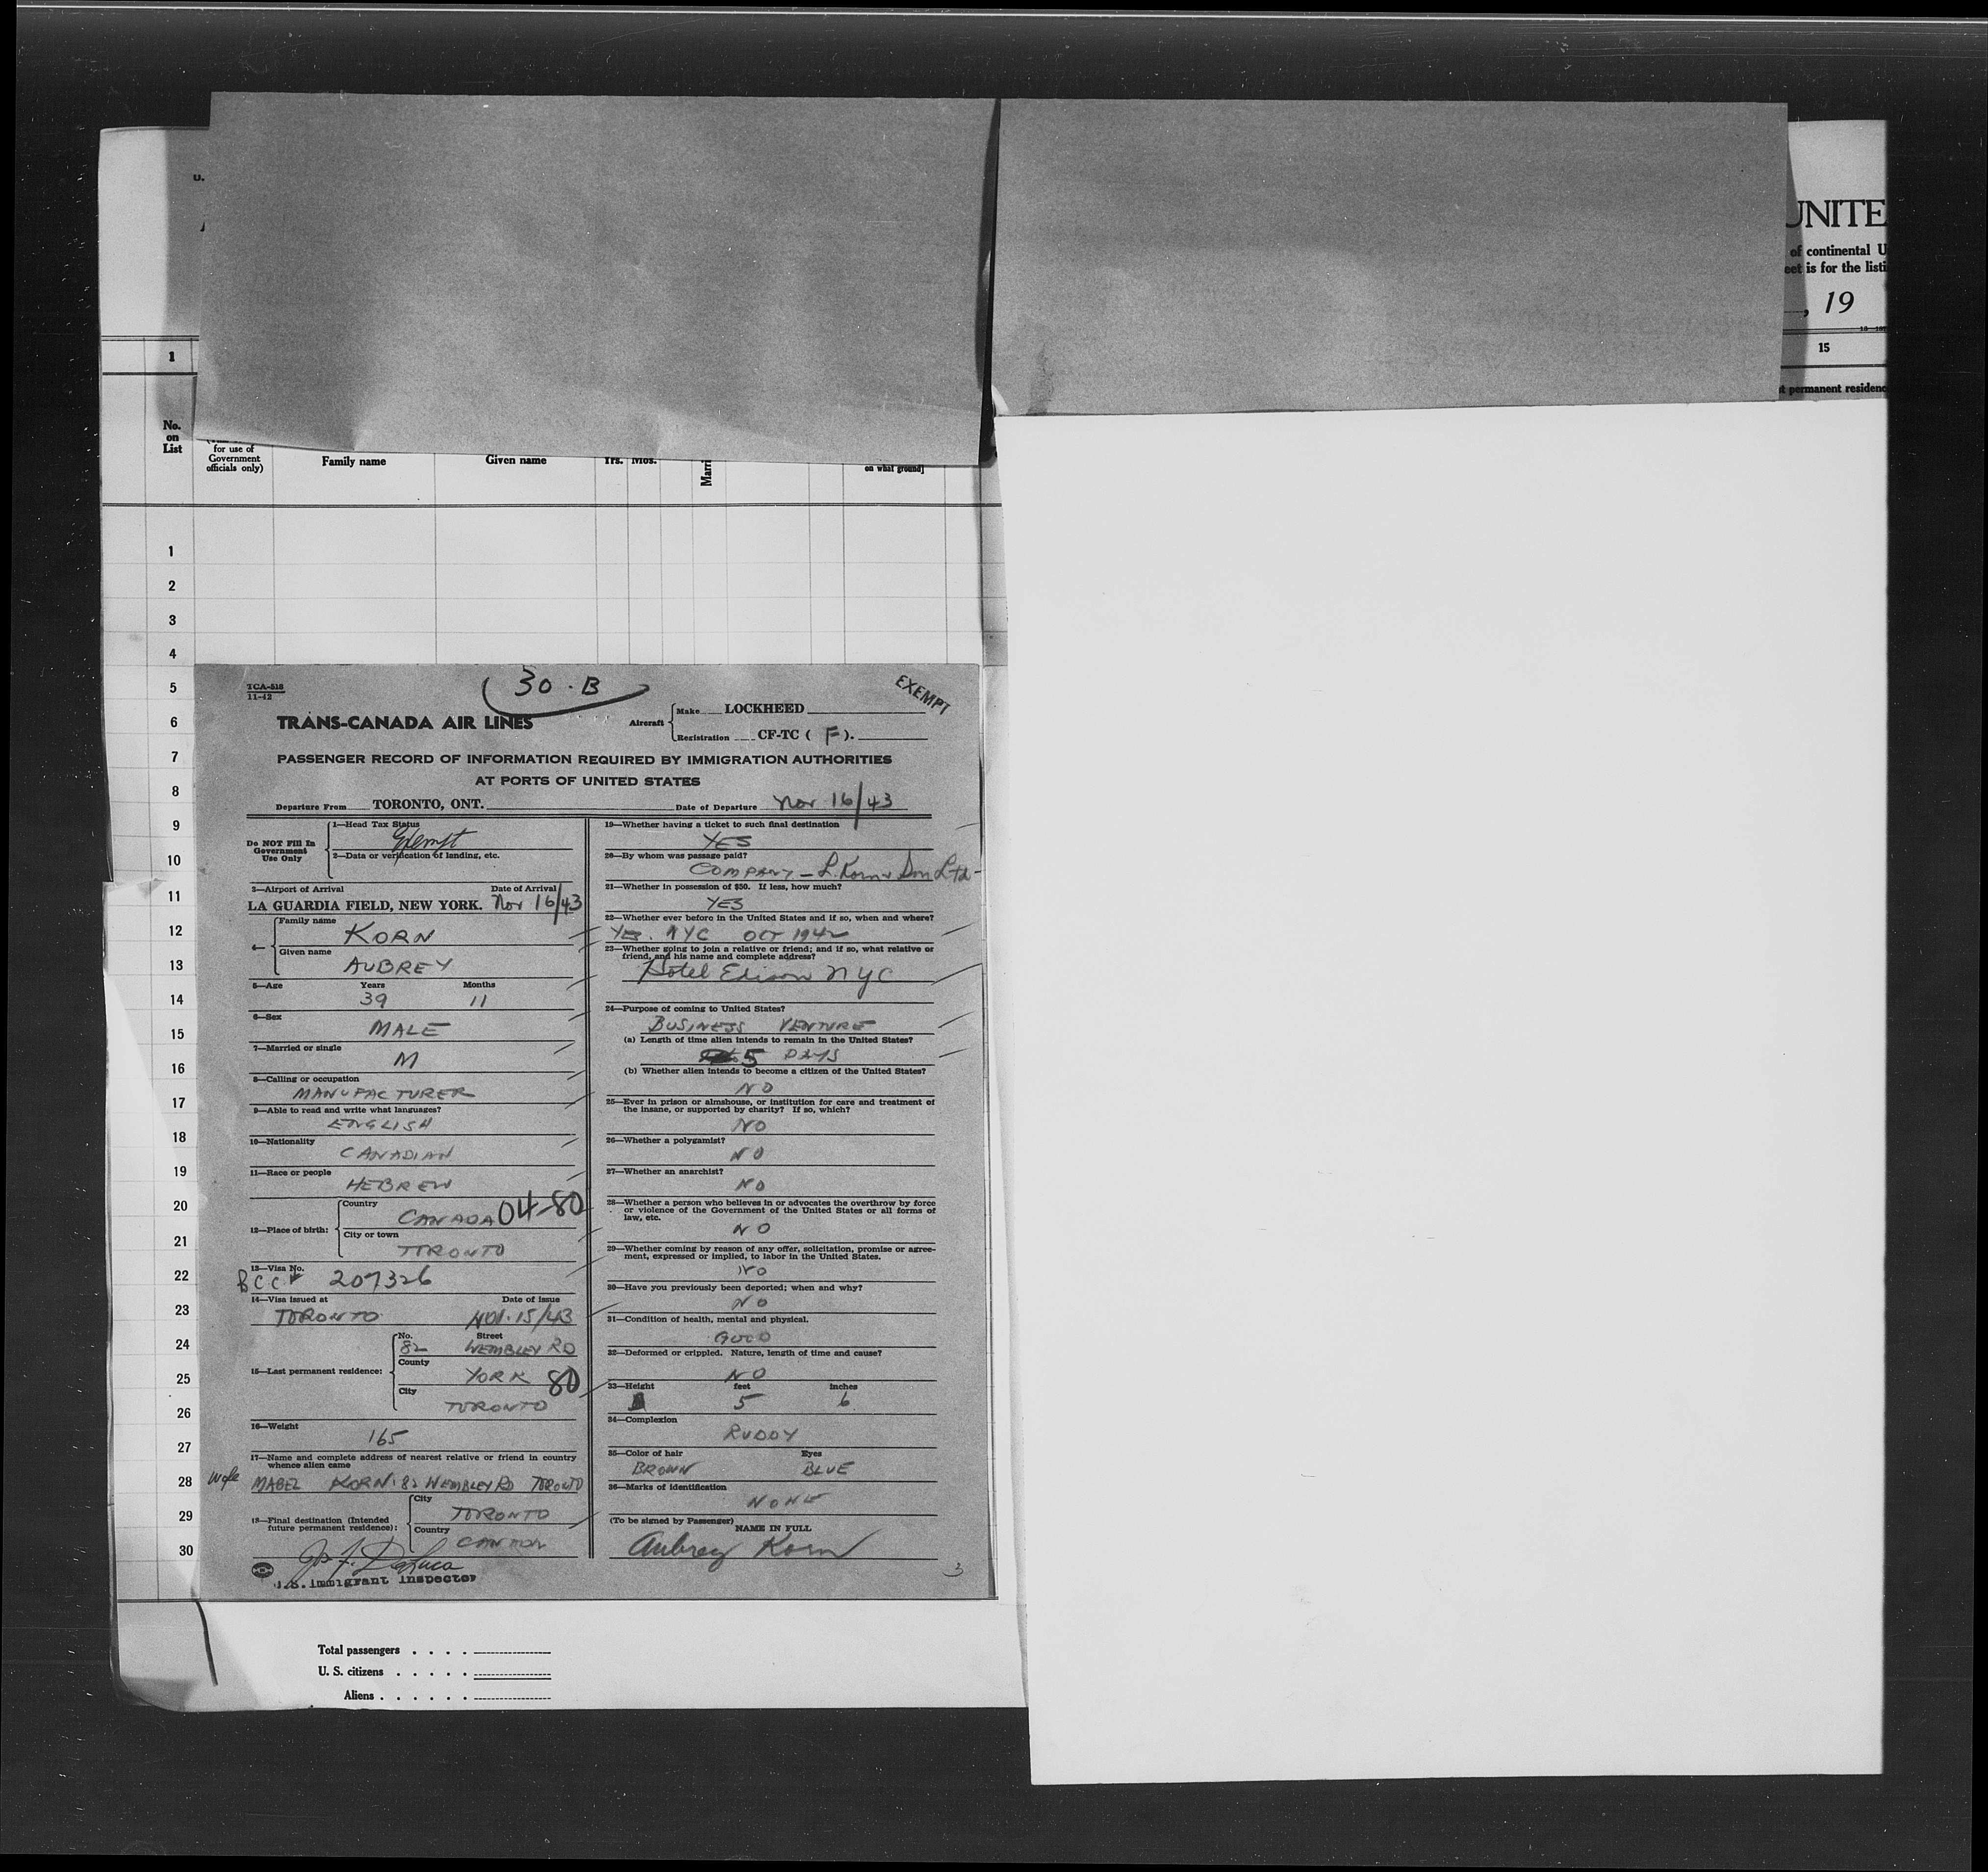 U.
UNITE
of continental U
eet is for the listi
, 19
1
15
t permanent residenc
No.
on
List
for use of
Government
officials only)
Family name
Given name
Yrs. Mos.
Marri
on what ground]
1
2
3
4
5
6
7
8
9
10
11
12
13
14
15
16
17
18
19
20
21
22
23
24
25
26
27
28
29
30
TCA-518
11-42
30-B
EXEMPT
TRANS-CANADA AIR LINES
Aircraft
Make LOCKHEED
Registration CF-TC ( F ).
PASSENGER RECORD OF INFORMATION REQUIRED BY IMMIGRATION AUTHORITIES
AT PORTS OF UNITED STATES
Departure From TORONTO, ONT. Date of Departure Nov 16/43
Do NOT Fill In
Government
Use Only
1—Head Tax Status
Exempt
2—Data or verification of landing, etc.
3—Airport of Arrival Date of Arrival
LA GUARDIA FIELD, NEW YORK. Nov 16/43
4—
Family name
KORN
Given name
AUBREY
5—Age Years Months
39 11
6—Sex
MALE
7—Married or single
M
8—Calling or occupation
MANUFACTURER
9—Able to read and write what languages?
ENGLISH
10—Nationality
CANADIAN
11—Race or people
HEBREW
12—Place of birth:
Country
CANADA 04-80
City or town
TORONTO
13—Visa No.
BCC 207326
14—Visa issued at Date of issue
TORONTO NOV. 15/43
15—Last permanent residence:
No. Street
82 WEMBLEY RD
County
YORK 80
City
TORONTO
16—Weight
165
17—Name and complete address of nearest relative or friend in country
whence alien came
wife MABEL KORN. 82 WEMBLEY RD TORONTO
18—Final destination (Intended
future permanent residence):
City
TORONTO
Country
CANADA
Jos. F. DeLuca
U.S. Immigrant Inspector
19—Whether having a ticket to such final destination
YES
20—By whom was passage paid?
COMPANY — L. Korn & Son Ltd-
21—Whether in possession of $50. If less, how much?
YES
22—Whether ever before in the United States and if so, when and where?
YES. NYC OCT 1942
23—Whether going to join a relative or friend; and if so, what relative or
friend, and his name and complete address?
Hotel Edison NYC
24—Purpose of coming to United States?
BUSINESS VENTURE
(a) Length of time alien intends to remain in the United States?
5 DAYS
(b) Whether alien intends to become a citizen of the United States?
NO
25—Ever in prison or almshouse, or institution for care and treatment of
the insane, or supported by charity? If so, which?
NO
26—Whether a polygamist?
NO
27—Whether an anarchist?
NO
28—Whether a person who believes in or advocates the overthrow by force
or violence of the Government of the United States or all forms of
law, etc.
NO
29—Whether coming by reason of any offer, solicitation, promise or agree-
ment, expressed or implied, to labor in the United States.
NO
30—Have you previously been deported; when and why?
NO
31—Condition of health, mental and physical.
GOOD
32—Deformed or crippled. Nature, length of time and cause?
NO
33—Height feet inches
5 6
34—Complexion
RUDDY
35—Color of hair Eyes
BROWN BLUE
36—Marks of identification
NONE
(To be signed by Passenger)
NAME IN FULL
Aubrey Korn
3
Total passengers . . . .
U. S. citizens . . . . .
Aliens . . . . . .